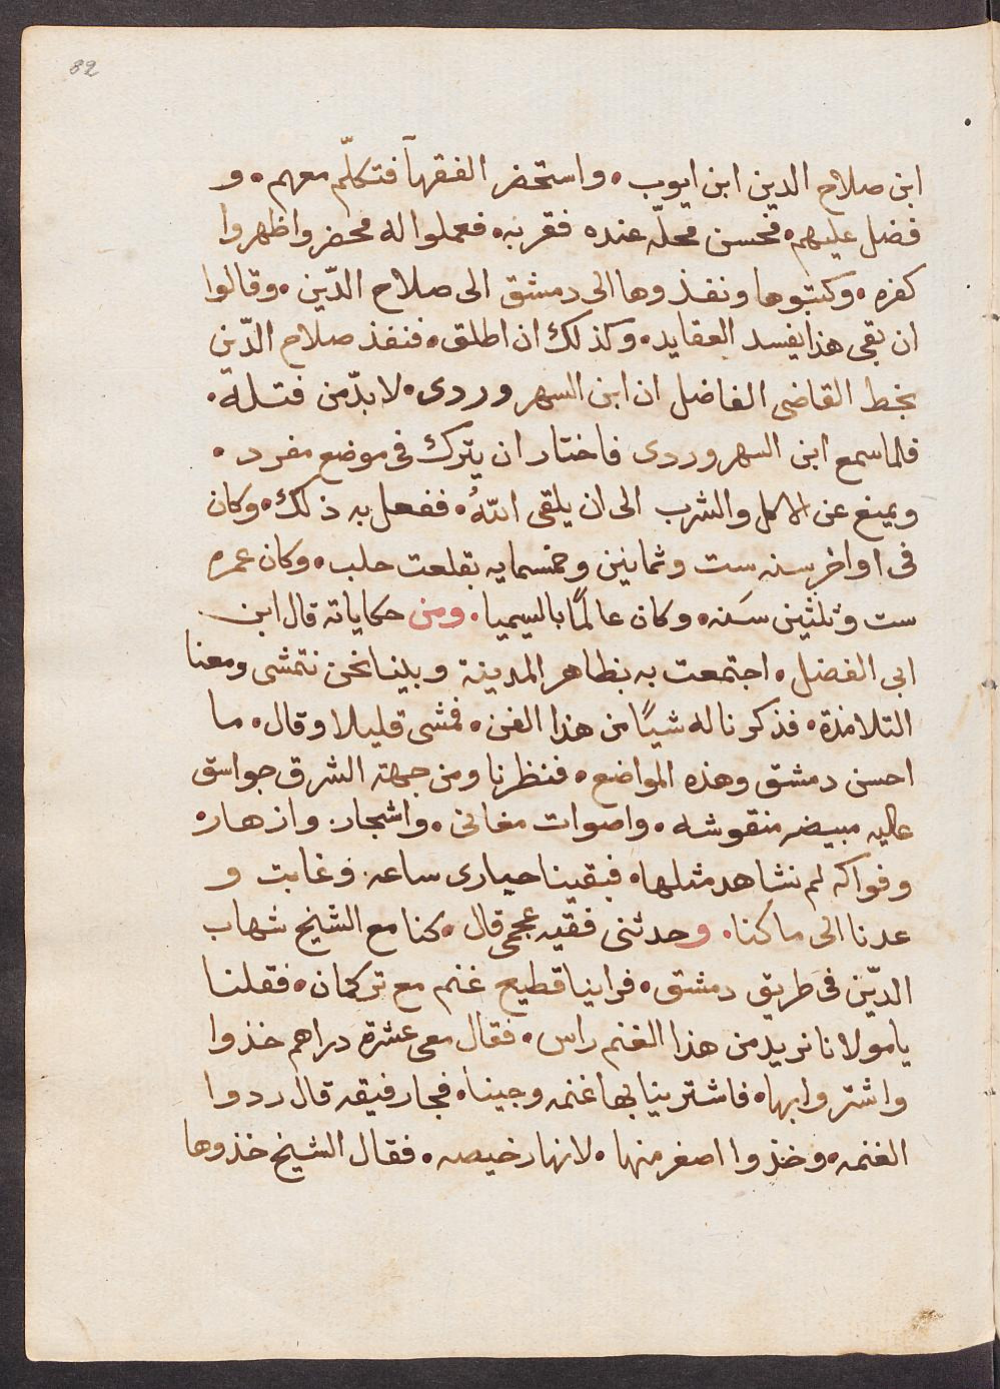 82
ابن صلاح الدين ابن ايوب • واستحضر الفقهآ فتكلّم معهم • و
فضل عليهم • فحسن محلّه عنده فقربه • فعملوا له محضر واظهروا
كفره • وكتبوها ونفذوها الى دمشق الى صلاح الدّين • وقالوا
ان بقى هذا يفسد العقايد • وكذلك ان اطلق • فنفذ صلاح الدّين
بخط القاضى الفاضل ان ابن السهروردى • لا بدّ من قتله •
فلما سمع ابن السهروردى فاختار ان يترك فى موضع مفرد •
ويمنع عن الاكل والشرب الى ان يلقى اللّهُ • ففعل به ذلك • وكان
فى اواخر سنه ست وثمانين وخمسمايه بقلعت حلب • وكان عمره
ست وثلثين سَنه • وكان عالمًا بالسيميا • ومن حكاياته قال ابن
ابى الفضل • اجتمعت به بظاهر المدينة وبينا نحن نتمشى ومعنا
التلامذة • فذكرنا له شيًا من هذا الفن • فمشى قليلا وقال • ما
احسن دمشق وهذه المواضع • فنظرنا ومن جهة الشرق جواسق
عاليه مبيضه منقوشه • واصوات مغانى • واشجار وازهار
وفواكه لم نشاهد مثلها • فبقينا حيارى ساعه • وغابت و
عدنا الى ما كنا • وحدثنى فقيه عجمى قال • كنا مع الشيخ شهاب
الدّين فى طريق دمشق • فراينا قطيع غنم مع تركمان • فقلنا
يا مولانا نريد من هذا الغنم راس • فقال معى عشرة دراهم خذوا
واشتروا بها • فاشترينا بها غنمه وجينا • فجا رفيقه قال ردوا
الغنمه • وخذوا اصغر منها • لانها رخيصه • فقال الشيخ خذوها